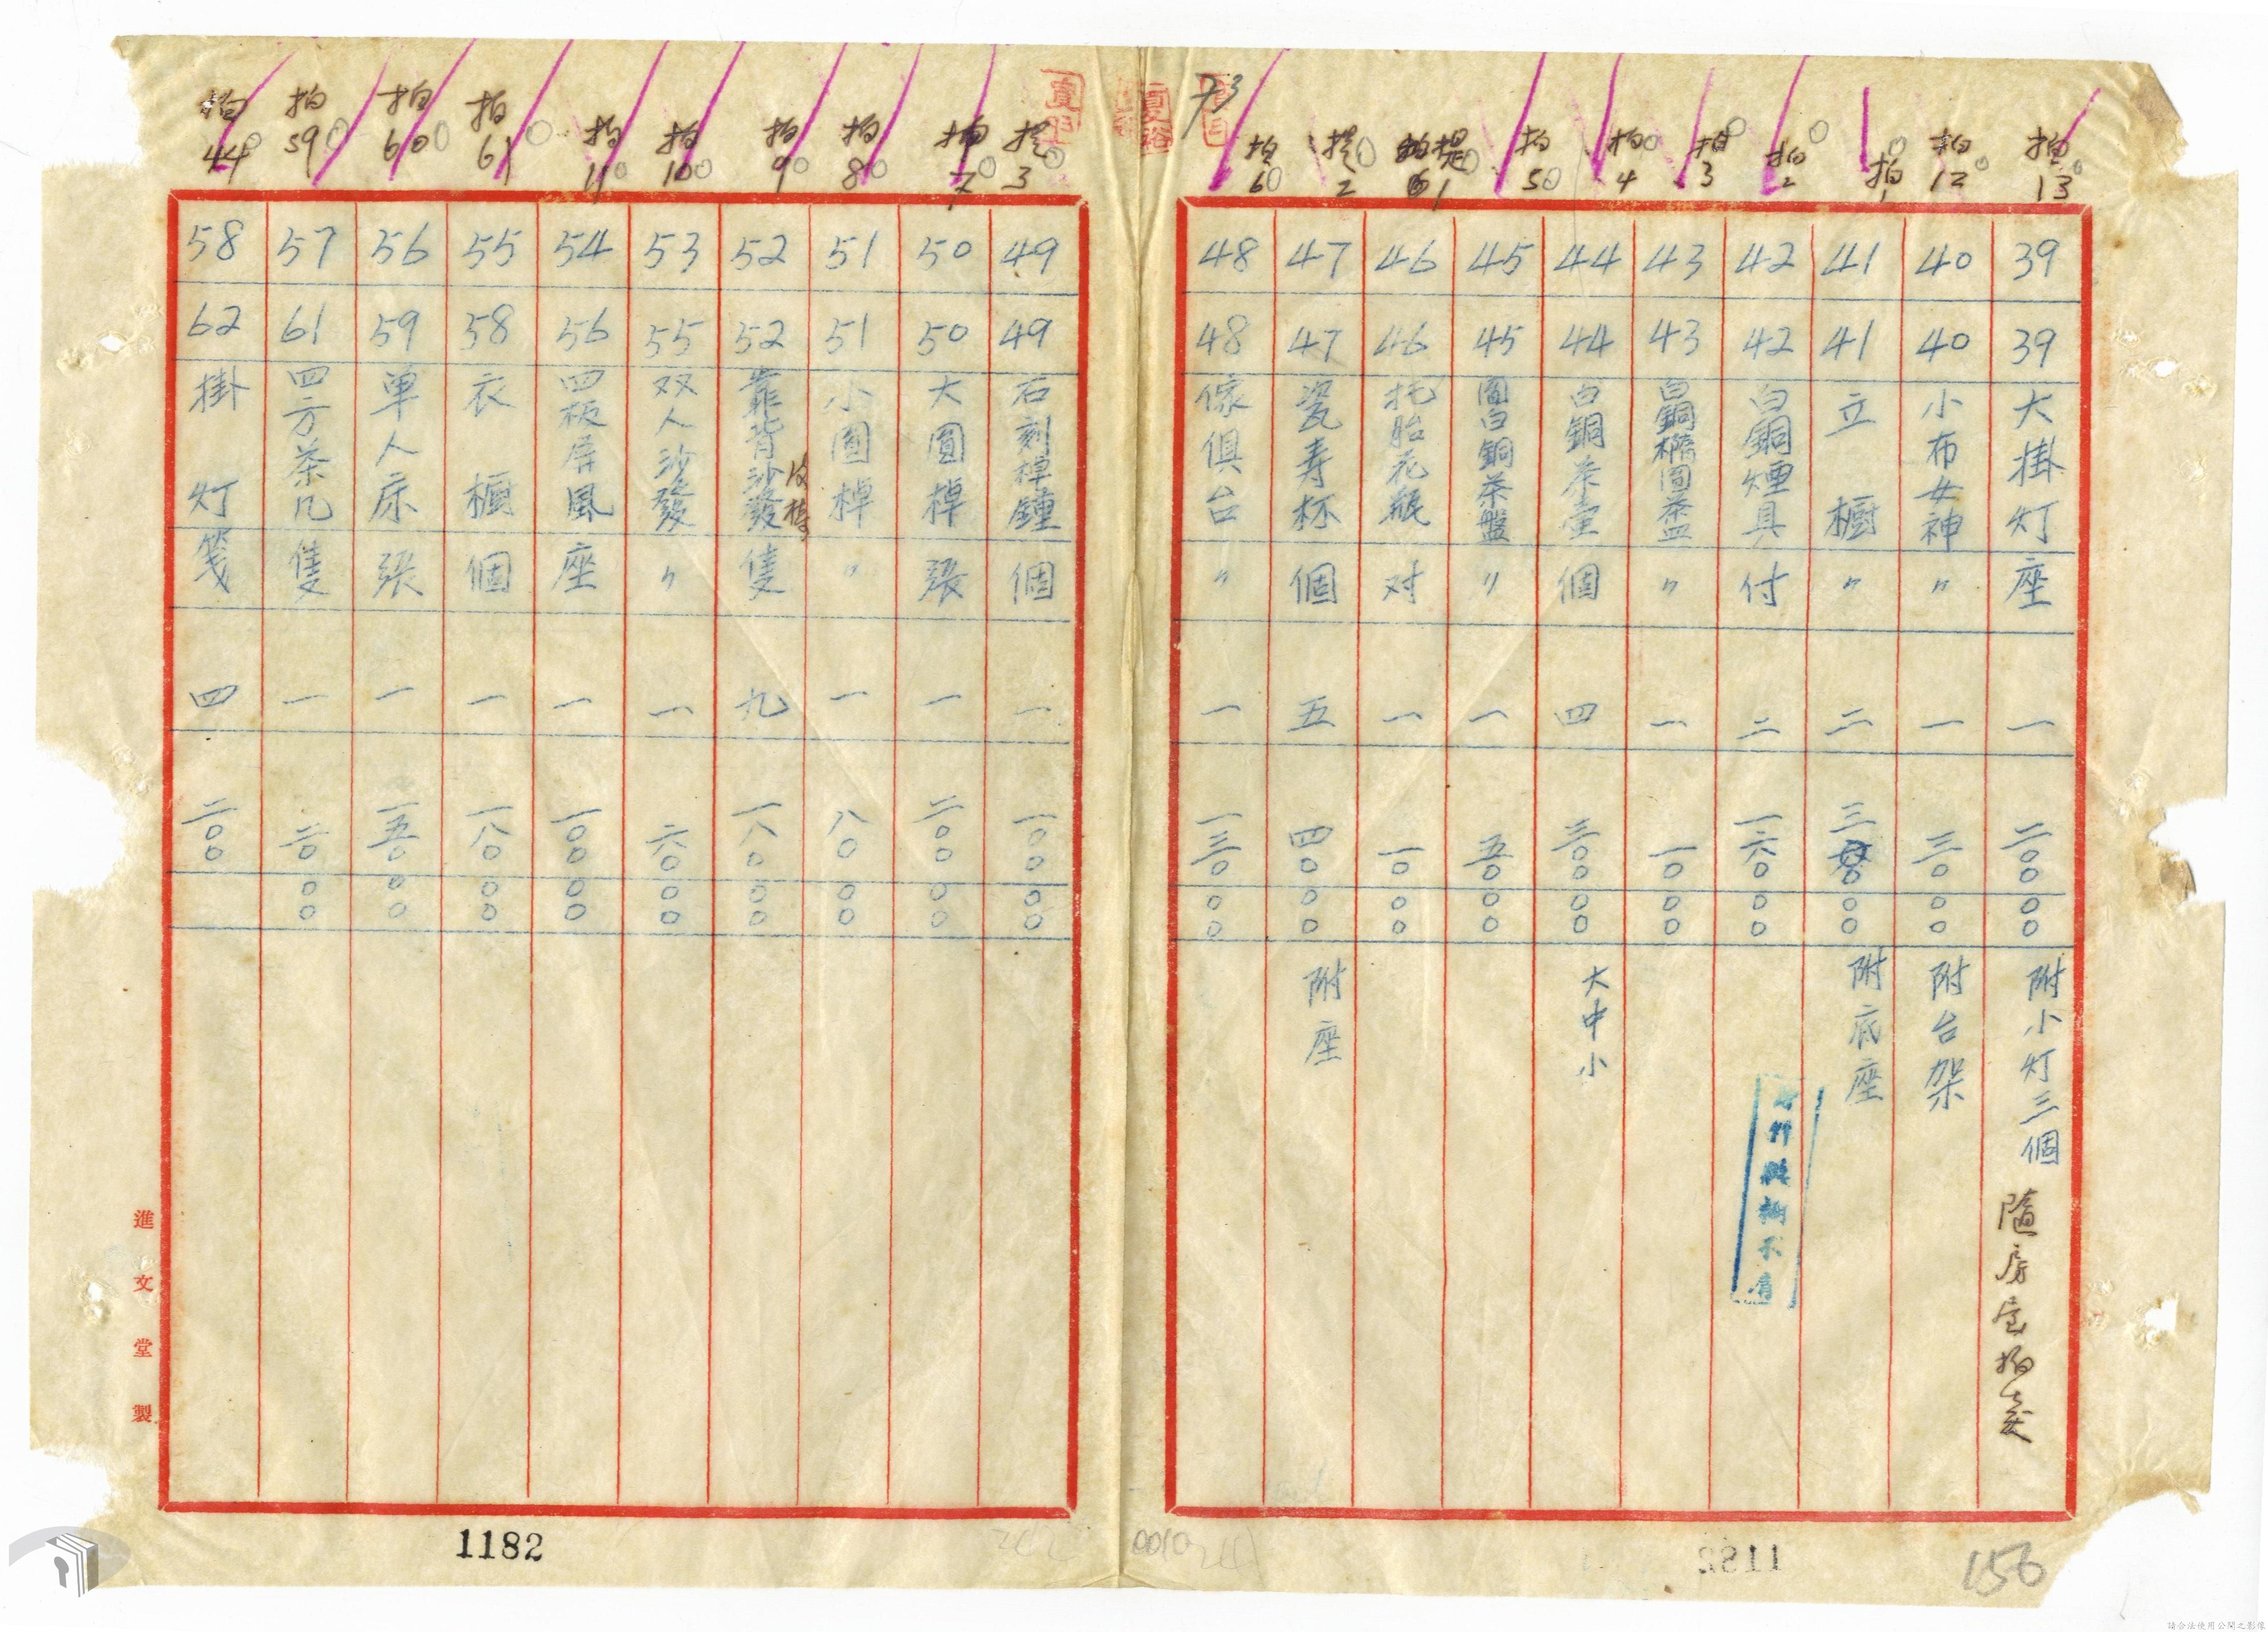 拍13 39 39 大掛灯 座 一 二〇〇 〇〇 附小灯三個 隨房屋拍賣
拍12 40 40 小布女神 〃 一 三〇 〇〇 附台架
拍1 41 41 立櫥 〃 二 〇〇 附底座
拍2 42 42 白銅煙具 付 二 一六〇 〇〇
拍3 43 43 白銅橢圓茶皿 〃 一 一〇 〇〇
拍4 44 44 白銅茶壺 個 四 三〇〇 〇〇 大中小
拍5 45 45 圓白銅茶盤 〃 一 五〇 〇〇
提1 46 46 托胎花瓶 对 一 一〇 〇〇
提2 47 47 瓷寿杯 個 五 四〇 〇〇 附座
拍6 48 48 傢俱台 〃 一 一三〇 〇〇
73
提3 49 49 石刻棹鍾 個 一 一〇〇 〇〇
拍7 50 50 大圓棹 張 一 二〇〇 〇〇
拍8 51 51 小圓棹 〃 一 八〇 〇〇
拍9 52 52 靠背沙發 隻 九 一八〇 〇〇
拍10 53 55 双人沙發 〃 一 六〇 〇〇
拍11 54 56 四板屏風 座 一 一〇〇 〇〇
拍61 55 58 衣櫥 個 一 一八〇 〇〇
拍60 56 59 单人床 張 一 一五〇 〇〇
拍59 57 61 四方茶几 隻 一 二〇 〇〇
拍44 58 62 掛灯 笺 四 二〇〇
進文堂製
1182
156
請合法使用公開之影像